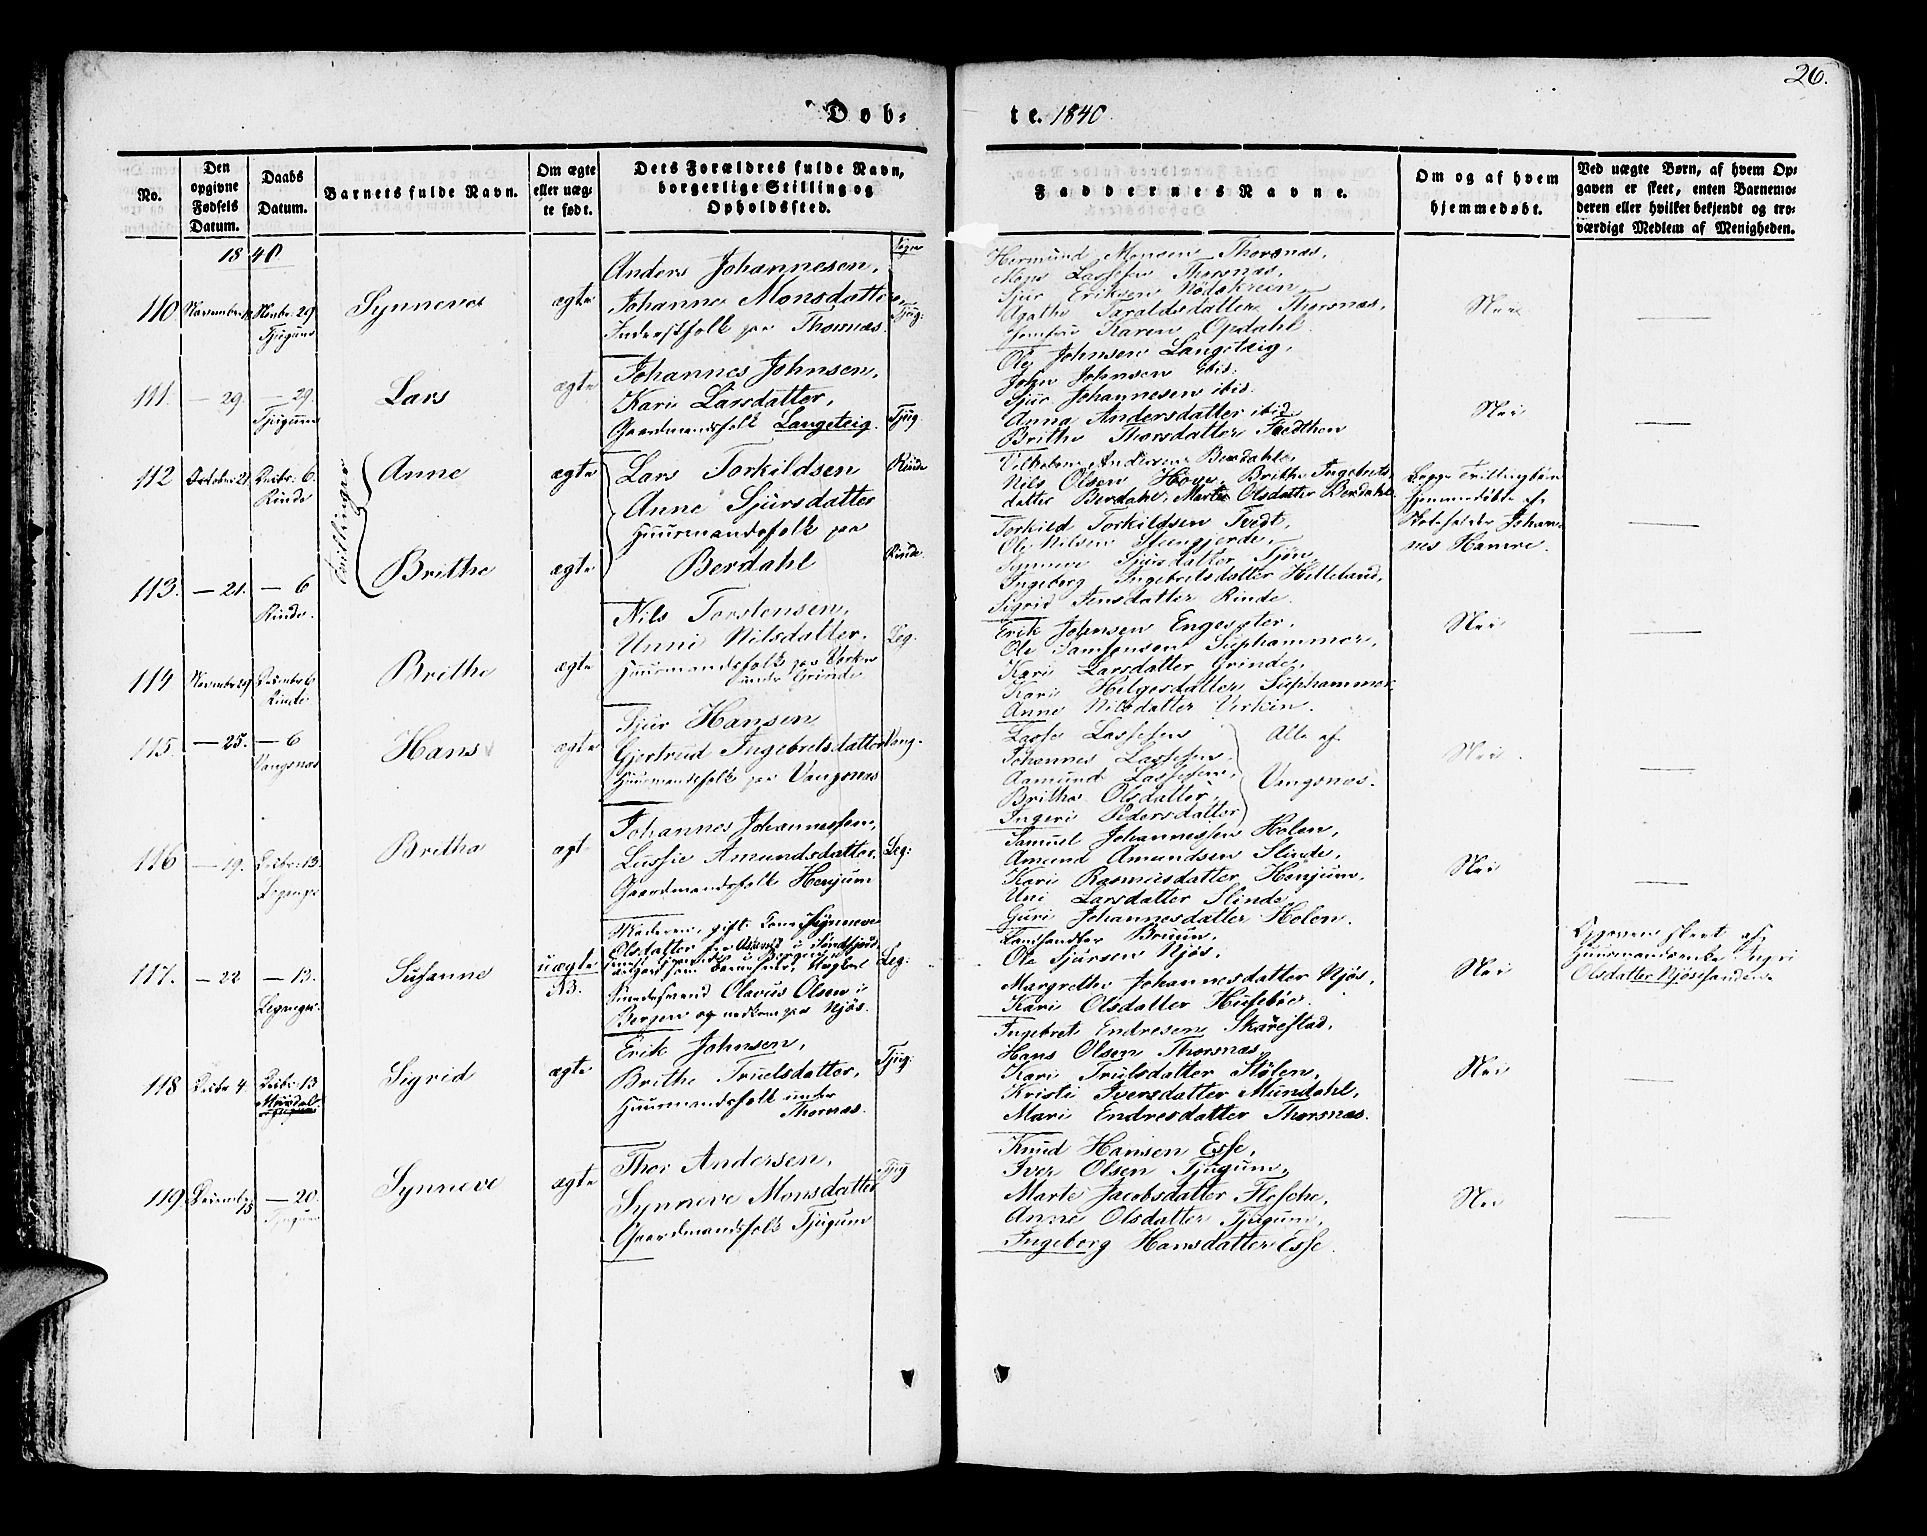 26.
Døb- te. 1840.
No.
Den opgivne Fødsels Datum.
Daabs Datum.
Barnets fulde Navn.
Om ægte eller uægte født.
Dets Forældres fulde Navn, borgerlige Stilling og Opholdssted.
Faddernes Navne.
Om og af hvem hjemmedøbt.
Ved uægte Børn, af hvem Opgaven er skeet, enten Barnemoderen eller hvilket bekjendt og troværdigt Medlem af Menigheden.
1840
110 Novembr Novbr. 29. Tjugum
Synneve
ægte
Anders Johannesen,
Johanne Monsdatter
Inderstfolk paa Thorsnæs.
Tjug:
Hermund Monsen Thorsnæs,
Mons Lassesen Thorsnæs,
Sjur Eriksen Nødskrein,
Agathe Taraldsdatter Thorsnæs,
Jomfru Karen Opdahl.
Nei
111. — 29. — 29. Tjugum
Lars
ægte
Johannes Johnsen,
Kari Larsdatter,
Gaardmandsfolk Langeteig.
Tjug.
Ole Johnsen Langeteig,
John Johnsen ibid.
Sjur Johannesen ibid.
Anna Andersdatter ibid
Brithe Thorsdatter Feedthen
Nei
112 October 21 Decbr. 6. Rinde
Tvillinger
Anne
ægte
Lars Torkildsen
Anne Sjursdatter
Huusmandsfolk paa
Berdahl
Rinde
Vilhelm Andersen Berdahl,
Nils Olsen Hove, Brithe Ingebrets-
datter Berdahl, Marthe Olsdatter Berdahl.
Begge Tvillingbørn
hjemmedøbte af
Skoleholder Johan-
nes Hamre.
113. — 21. — 6 Rinde.
Brithe
ægte
Rinde
Torkild Torkildsen Tvedt,
Ole Nilsen Steengjerde,
Synneve Sjursdatter Tjøn,
Ingeborg Ingebretsdatter Helleland,
Sigrid Jensdatter Rinde.
114 Novembr 29 Decembr 6. Rinde
Brithe
ægte
Nils Torstensen,
Unni Nilsdatter,
Huusmandsfolk paa Verken
under Grinde
Leg.
Erik Johnsen Engesæter,
Ole Samsonsen Suphammer,
Kari Larsdatter Grinde,
Kari Helgesdatter Suphammer,
Anne Nilsdatter Verkin.
Nei
115. — 25. — 6 Vangsnæs
Hans
ægte
Sjur Hansen
Gjertrud Ingebretsdatter
Huusmandsfolk paa Vangsnæs
Vang.
Lasse Lassesen
Johannes Lassesen,
Aamund Lassesen,
Brithe Olsdatter,
Ingeri Pedersdatter
Alle af
Vangsnæs.
Nei.
116 — 19. Decbr: 13. Leganger
Britha
ægt
Johannes Johannessen,
Lussie Amundsdatter,
Gaardmandsfolk Henjum
Leg:
Samuel Johannessen Holen,
Amund Amundsen Slinde,
Kari Rasmusdatter Henjum,
Uni Larsdatter Slinde,
Guri Johannesdatter Holen.
Nei
117. — 22 — 13. Leganger.
Susanne
uægte NB.
Moderen, gift Kone Synneve
Olsdatter fra i Søndfjord
Olavus Olsen i
Bergen og nedkom paa Njøs.
Leg:
Landhandler Bruun,
Ole Sjursen Njøs,
Margrethe Johannesdatter Njøs,
Kari Olsdatter Husebøe.
Nei
Opgaven skeet af
Huusmandsenke Ingri
Olsdatter Njøsesanden.
118 Decbr 4 Decbr: 13
Sigrid
ægte
Erik Johnsen,
Brithe Truelsdatter,
Huusmandsfolk under
Thornæs.
Tjug:
Ingebret Endresen Skarestad,
Hans Olsen Thorsnæs,
Kari Trulsdatter Stølen,
Kristi Iversdatter Mundahl,
Mari Endresdatter Thorsnæs.
Nei
119 Decembr 15 — 20. Tjugum
Synneve
ægte
Thor Andersen,
Synneve Monsdatter
Gaardmandsfolk Tjugum
Tjug
Knud Hansen Esse,
Iver Olsen Tjugum,
Marte Jacobsdatter Flesche,
Anne Olsdatter Tjugum,
Ingeborg Hansdatter Esse.
Nei